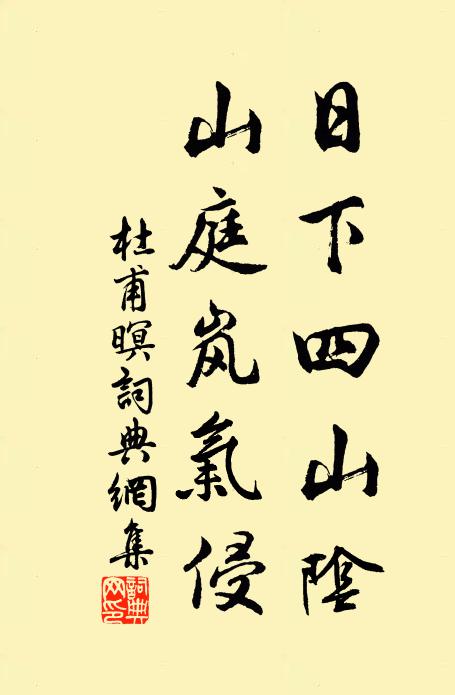 日下四山陰
山庭岚氣侵
杜甫暝詞典網集
詞典網印